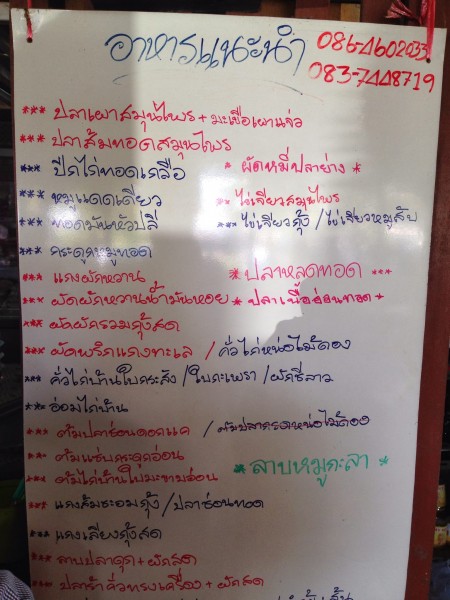 อาหารแนะนำ
083-7448719
*** ปลาเผาสมุนไพร + มะเขือเผาแจ่ว
*** ปลาส้มทอดสมุนไพร
*** ปีกไก่ทอดเกลือ * ผัดหมี่ปลาย่าง *
*** หมูแดดเดียว ** ไข่เจียวสมุนไพร
*** ทอดมันหัวปลี *** ไข่เจียวกุ้ง / ไข่เจียวหมูสับ
*** กระดูกหมูทอด
*** แกงผักหวาน * ปลาหลดทอด ***
*** ผัดผักหวานน้ำมันหอย * ปลาเนื้ออ่อนทอด *
*** ผัดผักรวมกุ้งสด
*** ผัดพริกแกงทะเล / คั่วไก่หน่อไม้ดอง
*** คั่วไก่บ้านใบกระสัง / ใบกะเพรา / ผักชีลาว
*** อ่อมไก่บ้าน
*** ต้มปลาช่อนดอกแค / ต้มปลากรดหน่อไม้ดอง
*** ต้มแซ่บกระดูกอ่อน
*** ต้มไก่บ้านใบมะขามอ่อน * ลาบหมูกะลา *
*** แกงส้มชะอมกุ้ง / ปลาช่อนทอด
*** แกงเลียงกุ้งสด
*** ลาบปลาดุก + ผักสด
*** ปลาร้าคั่วทรงเครื่อง + ผักสด